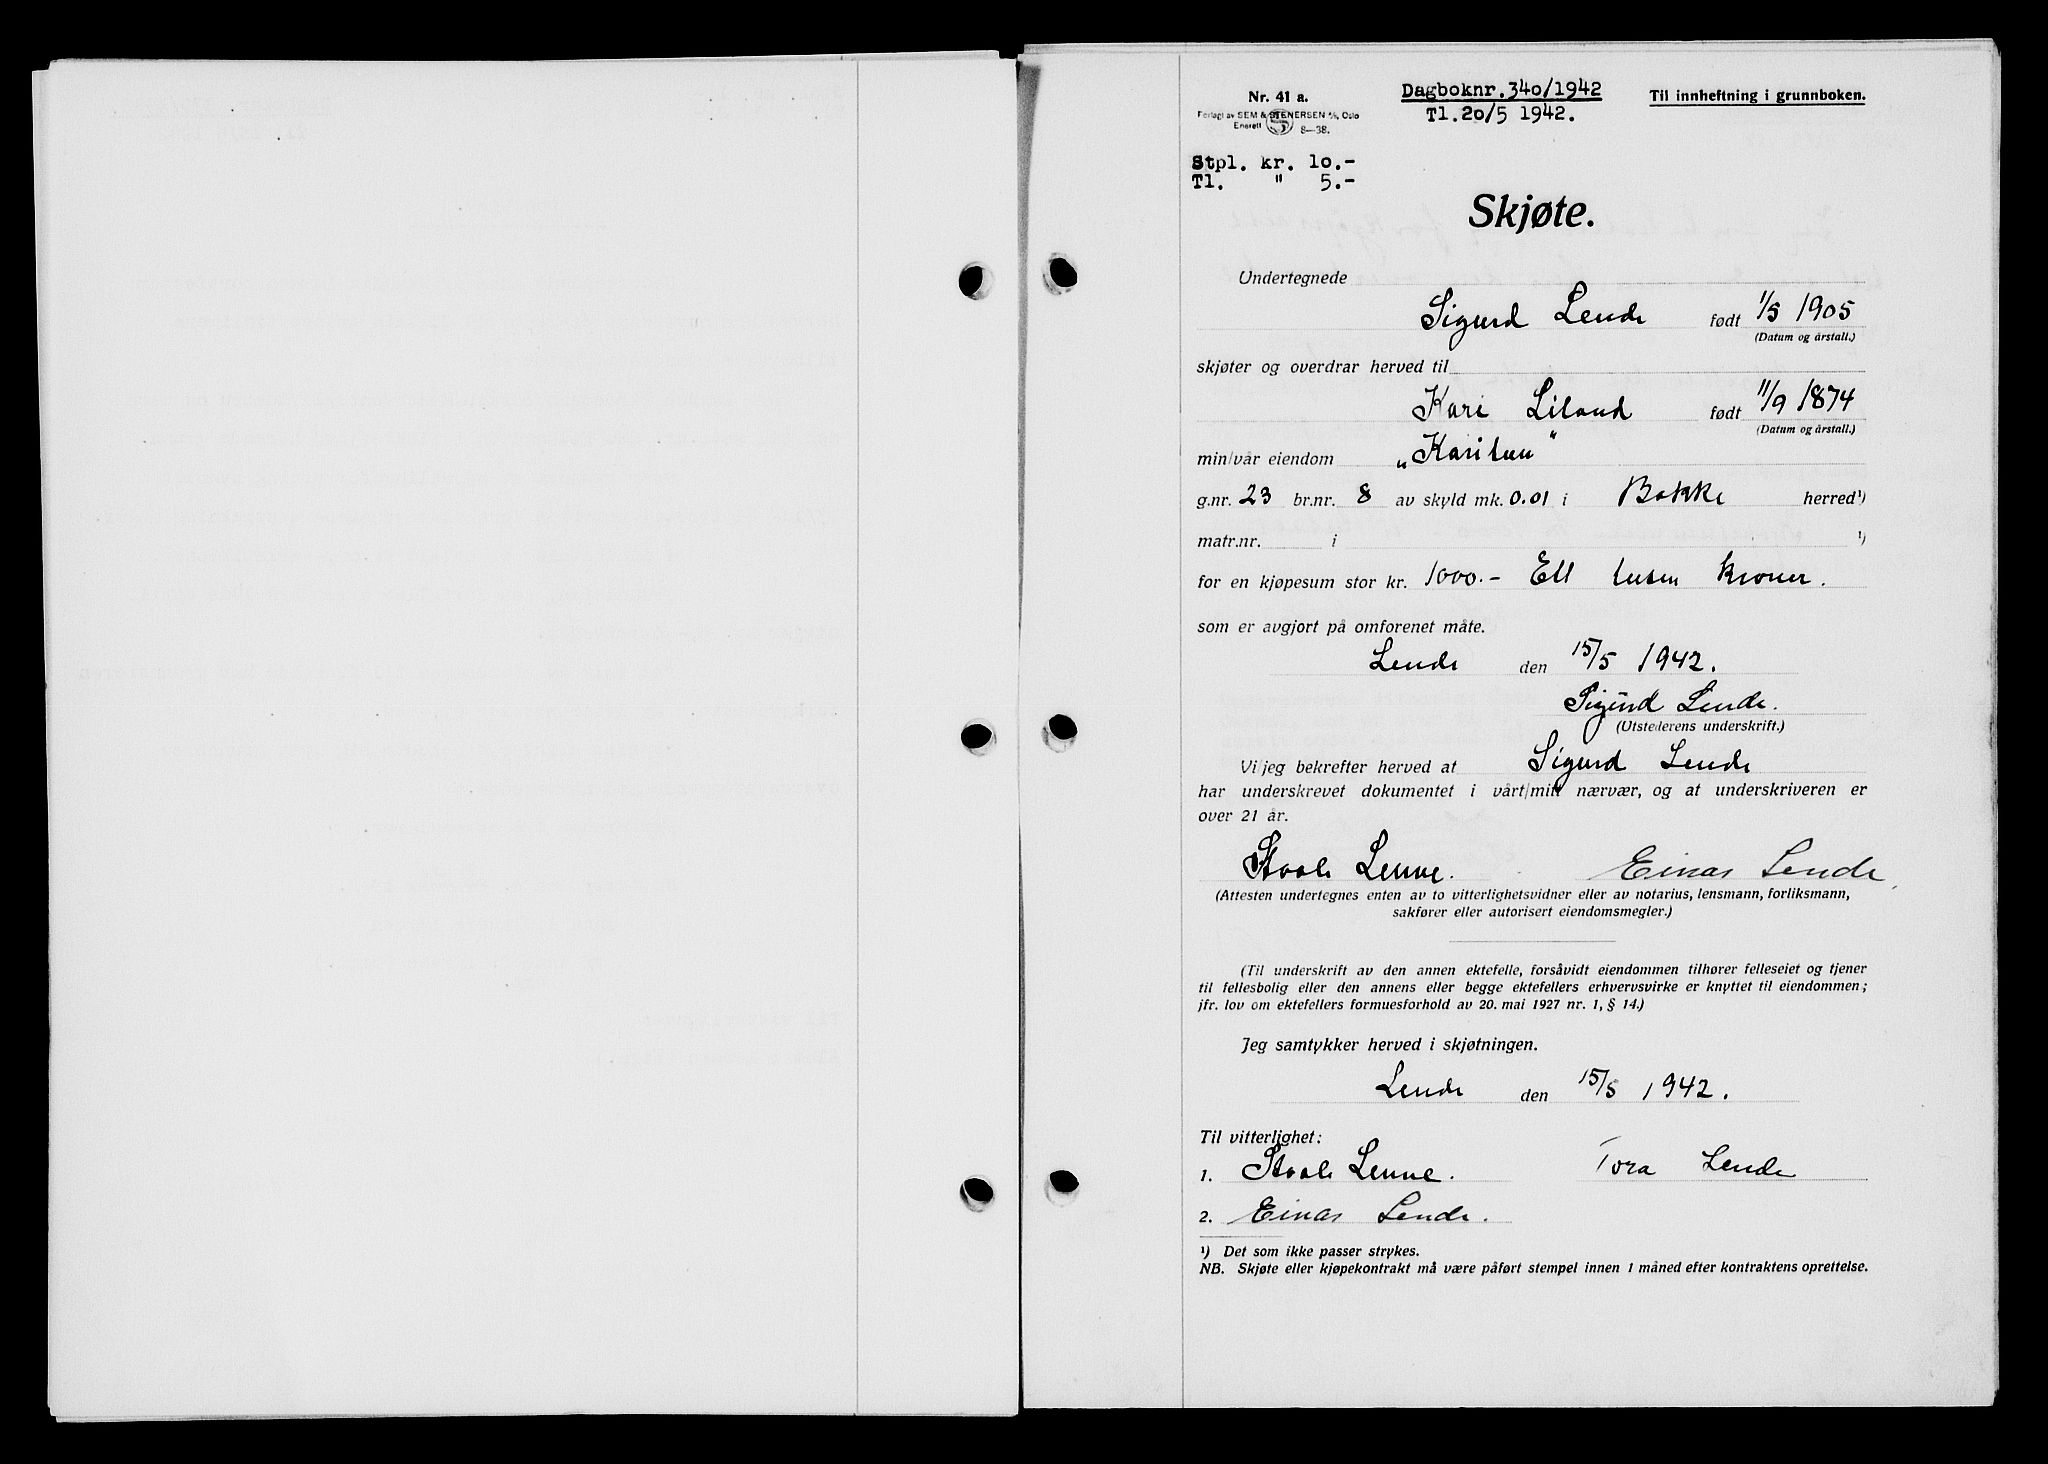 Nr. 41 a.
Forlagt av SEM & STENERSEN A/S, Oslo
Enerett 8—38.
Dagboknr. 340/1942
Tl. 20/5 1942.
Til innheftning i grunnboken.
Stpl. kr. 10.-
Tl. " 5.-
Skjøte.
Undertegnede
Sigurd Lende født 1/5 1905
(Datum og årstall.)
skjøter og overdrar herved til
Kari Liland født 11/9 1874
(Datum og årstall.)
min/vår eiendom „Karitun"
g.nr. 23 br.nr. 8 av skyld mk. 0.01 i Bakke herred¹)
matr.nr. i ¹)
for en kjøpesum stor kr. 1000.- Ett tusen kroner.
som er avgjort på omforenet måte.
Lende den 15/5 1942.
Sigurd Lende.
(Utstederens underskrift.)
Vi/jeg bekrefter herved at Sigurd Lende
har underskrevet dokumentet i vårt/mitt nærvær, og at underskriveren er
over 21 år.
Staale Lenne. Einar Lende.
(Attesten undertegnes enten av to vitterlighetsvidner eller av notarius, lensmann, forliksmann,
sakfører eller autorisert eiendomsmegler.)
(Til underskrift av den annen ektefelle, forsåvidt eiendommen tilhører felleseiet og tjener
til fellesbolig eller den annens eller begge ektefellers erhvervsvirke er knyttet til eiendommen;
jfr. lov om ektefellers formuesforhold av 20. mai 1927 nr. 1, § 14.)
Jeg samtykker herved i skjøtningen.
Lende den 15/5 1942.
Til vitterlighet:
1. Staale Lenne. Tora Lende
2. Einar Lende.
¹) Det som ikke passer strykes.
NB. Skjøte eller kjøpekontrakt må være påført stempel innen 1 måned efter kontraktens oprettelse.